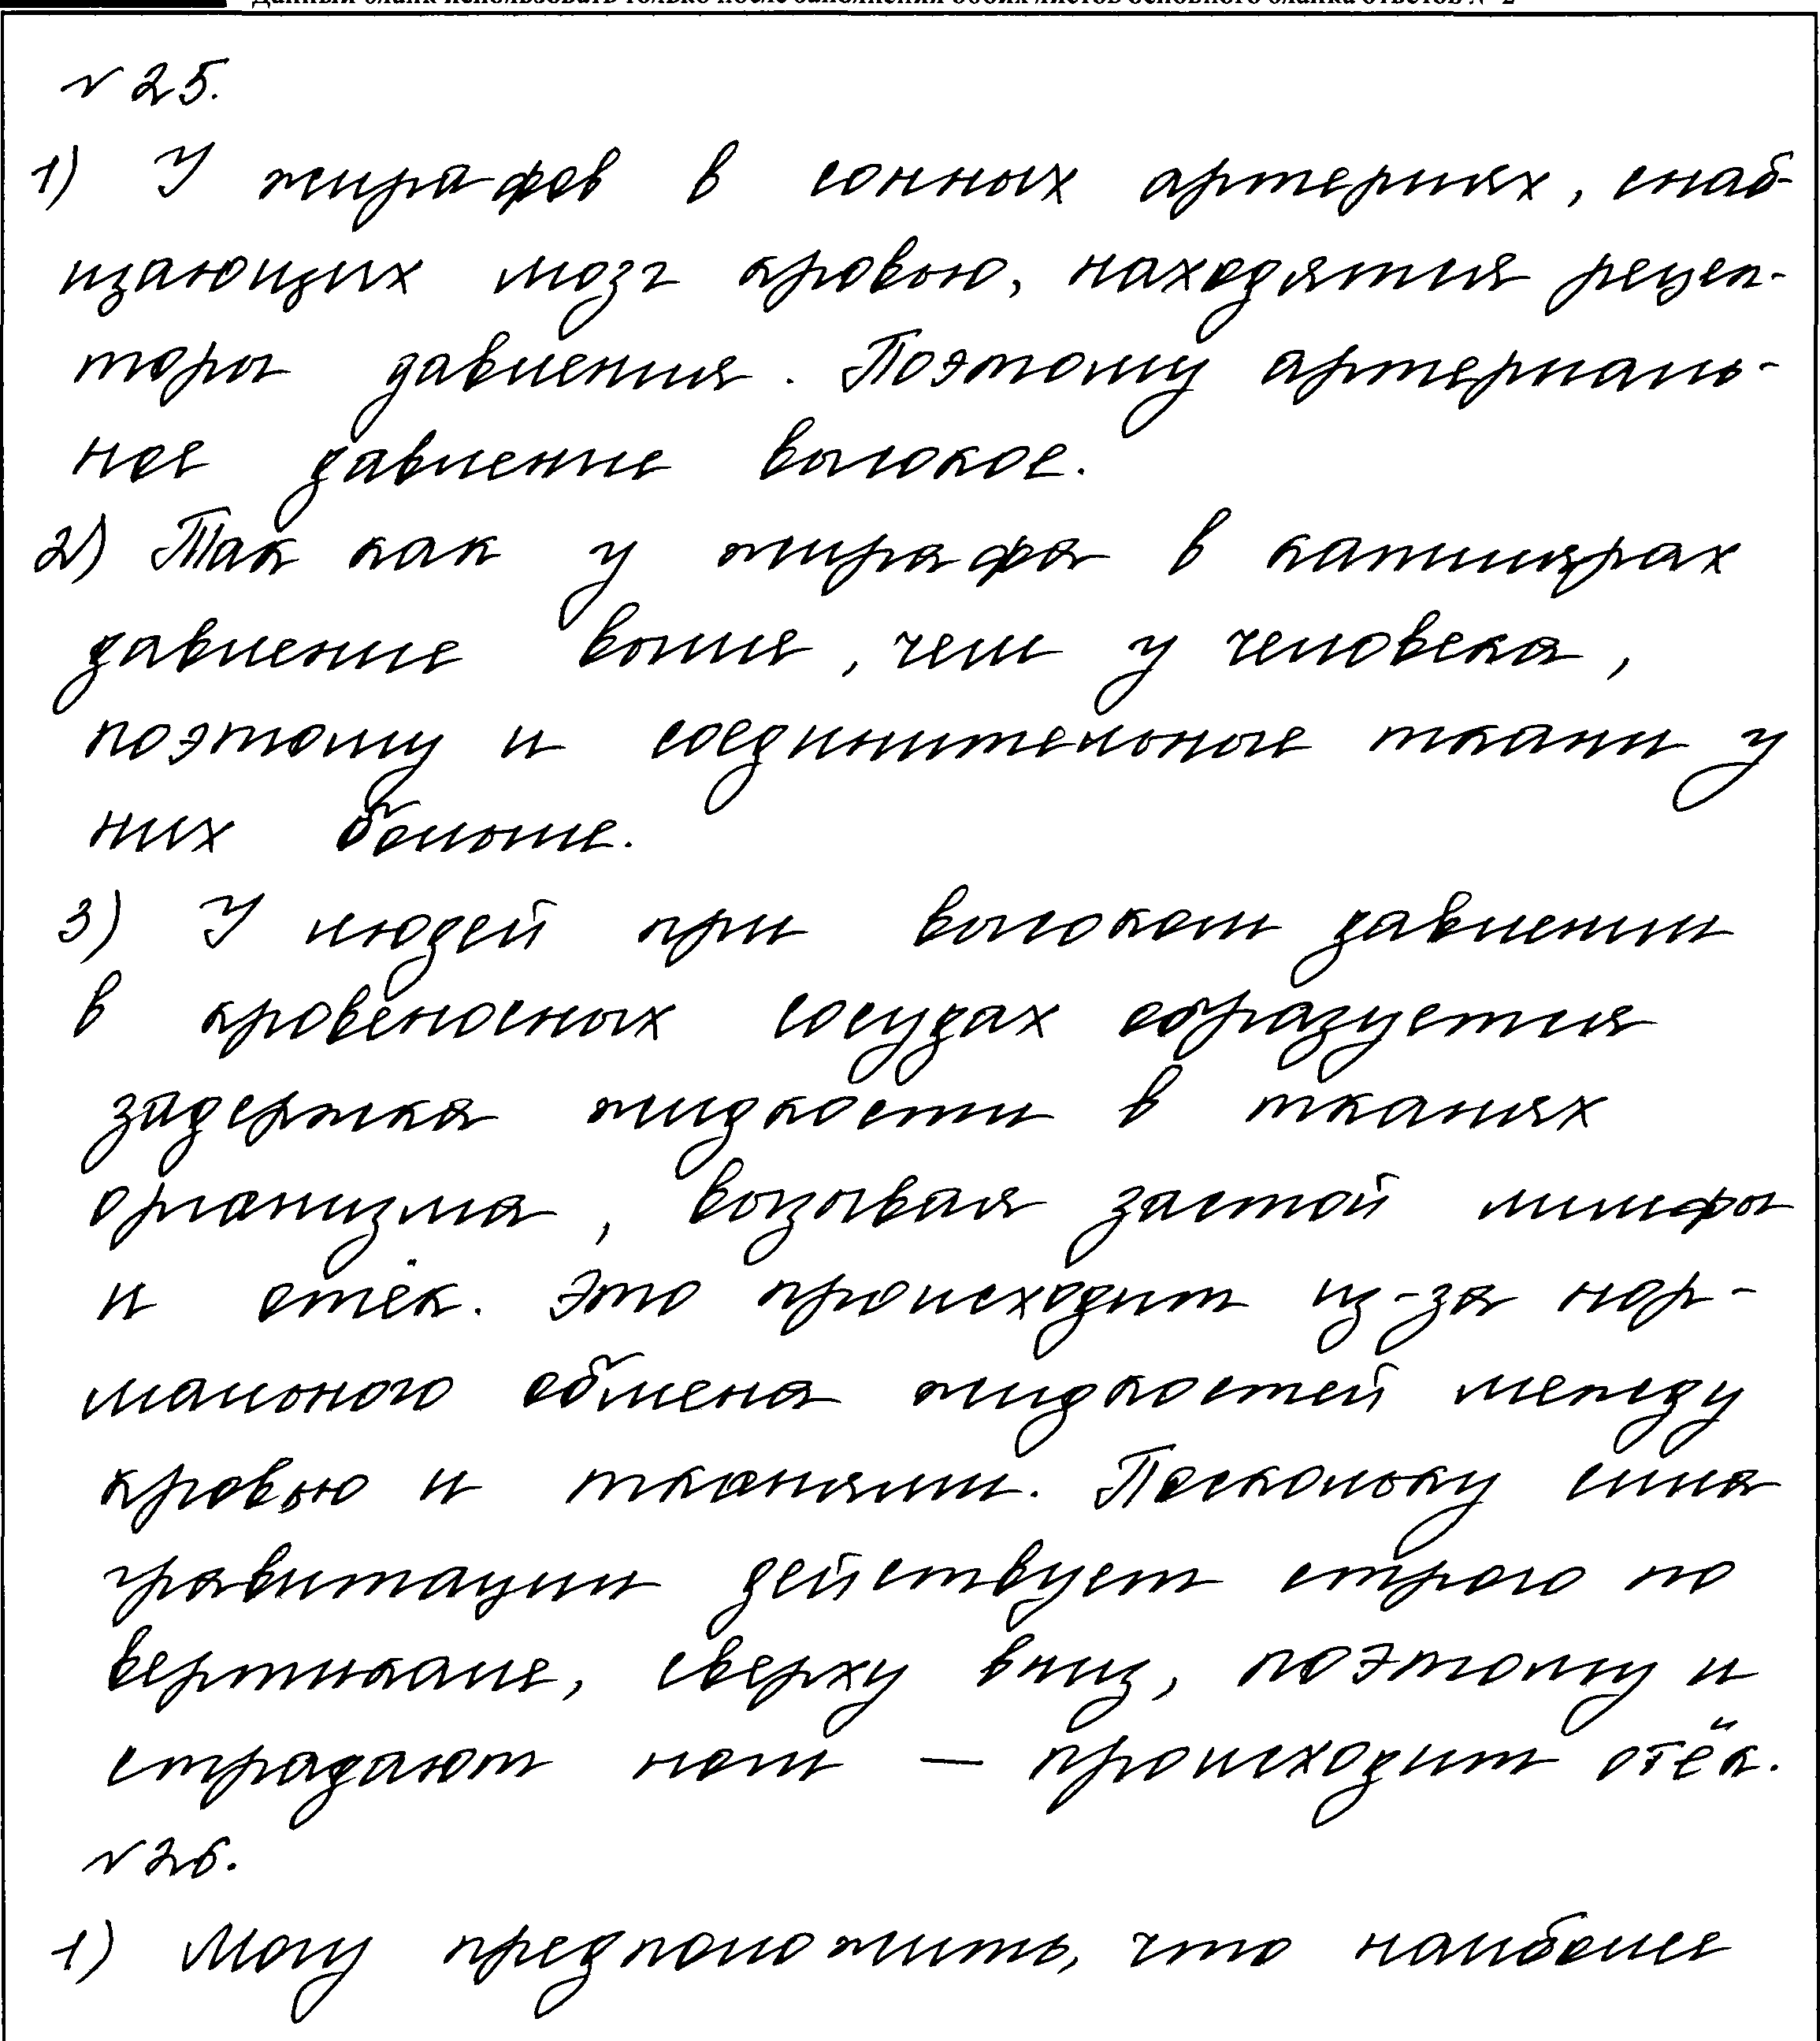 Данный бланк использовать только после заполнения обоих листов основного бланка ответов № 2
№ 25.
1) У жирафов в сонных артериях, снаб-
щающих мозг кровью, находятся рецеп-
торы давления. Поэтому артериаль-
ное давление высокое.
2) Так как у жирафа в капилярах
давление выше, чем у человека,
поэтому и соединительные ткани у
них больше.
3) У людей при высоком давлении
в кровеносных сосудах образуется
задержка жидкости в тканях
организма, вызывая застой лимфы
и отёк. Это происходит из-за нор-
мального обмена жидкостей между
кровью и тканями. Поскольку сила
гравитации действует строго по
вертикале, сверху вниз, поэтому и
страдают ноги — происходит отёк.
№ 26.
1) Могу предположить, что наиболее